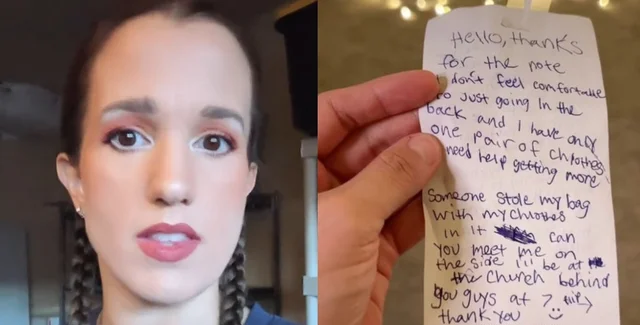 Hello, thanks
for the note
I don't feel comfortable
to just going in the
back and I have only
one pair of chlothes
need help getting more
Someone stole my bag
with my chlothes
in it can
you meet me on
the side I'll be at
the church behind
you guys at 7
thank you